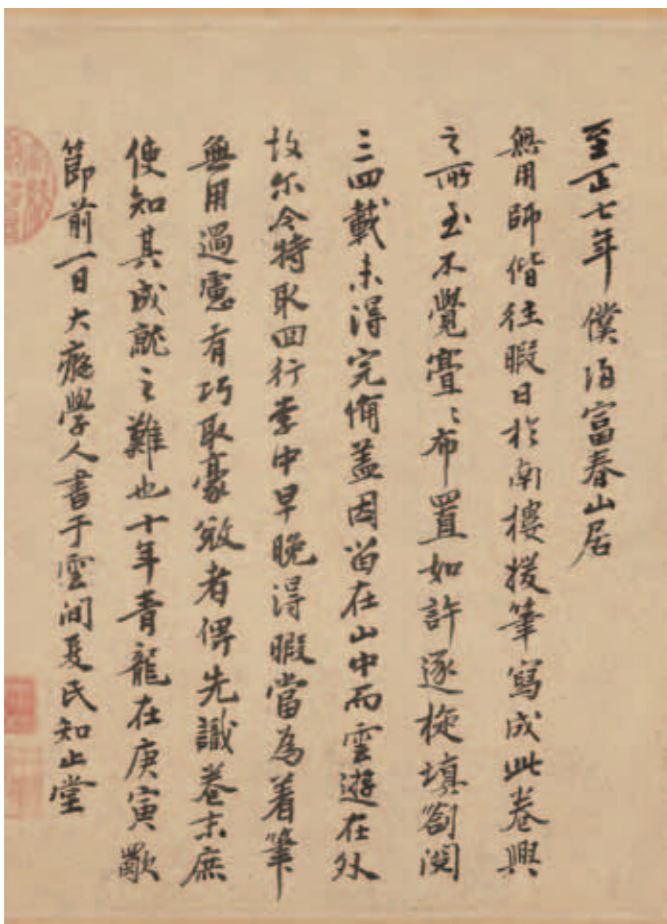 至正七年僕歸富春山居
無用師偕往暇日於南樓援筆寫成此卷興
之所至不覺亹亹布置如許逐旋填劄閱
三四載未得完備蓋因留在山中而雲遊在外
故尔今特取回行李中早晚得暇當為着筆
無用過慮有巧取豪敚者俾先識卷末庶
使知其成就之難也十年青龍在庚寅歜
節前一日大癡學人書于雲間夏氏知止堂